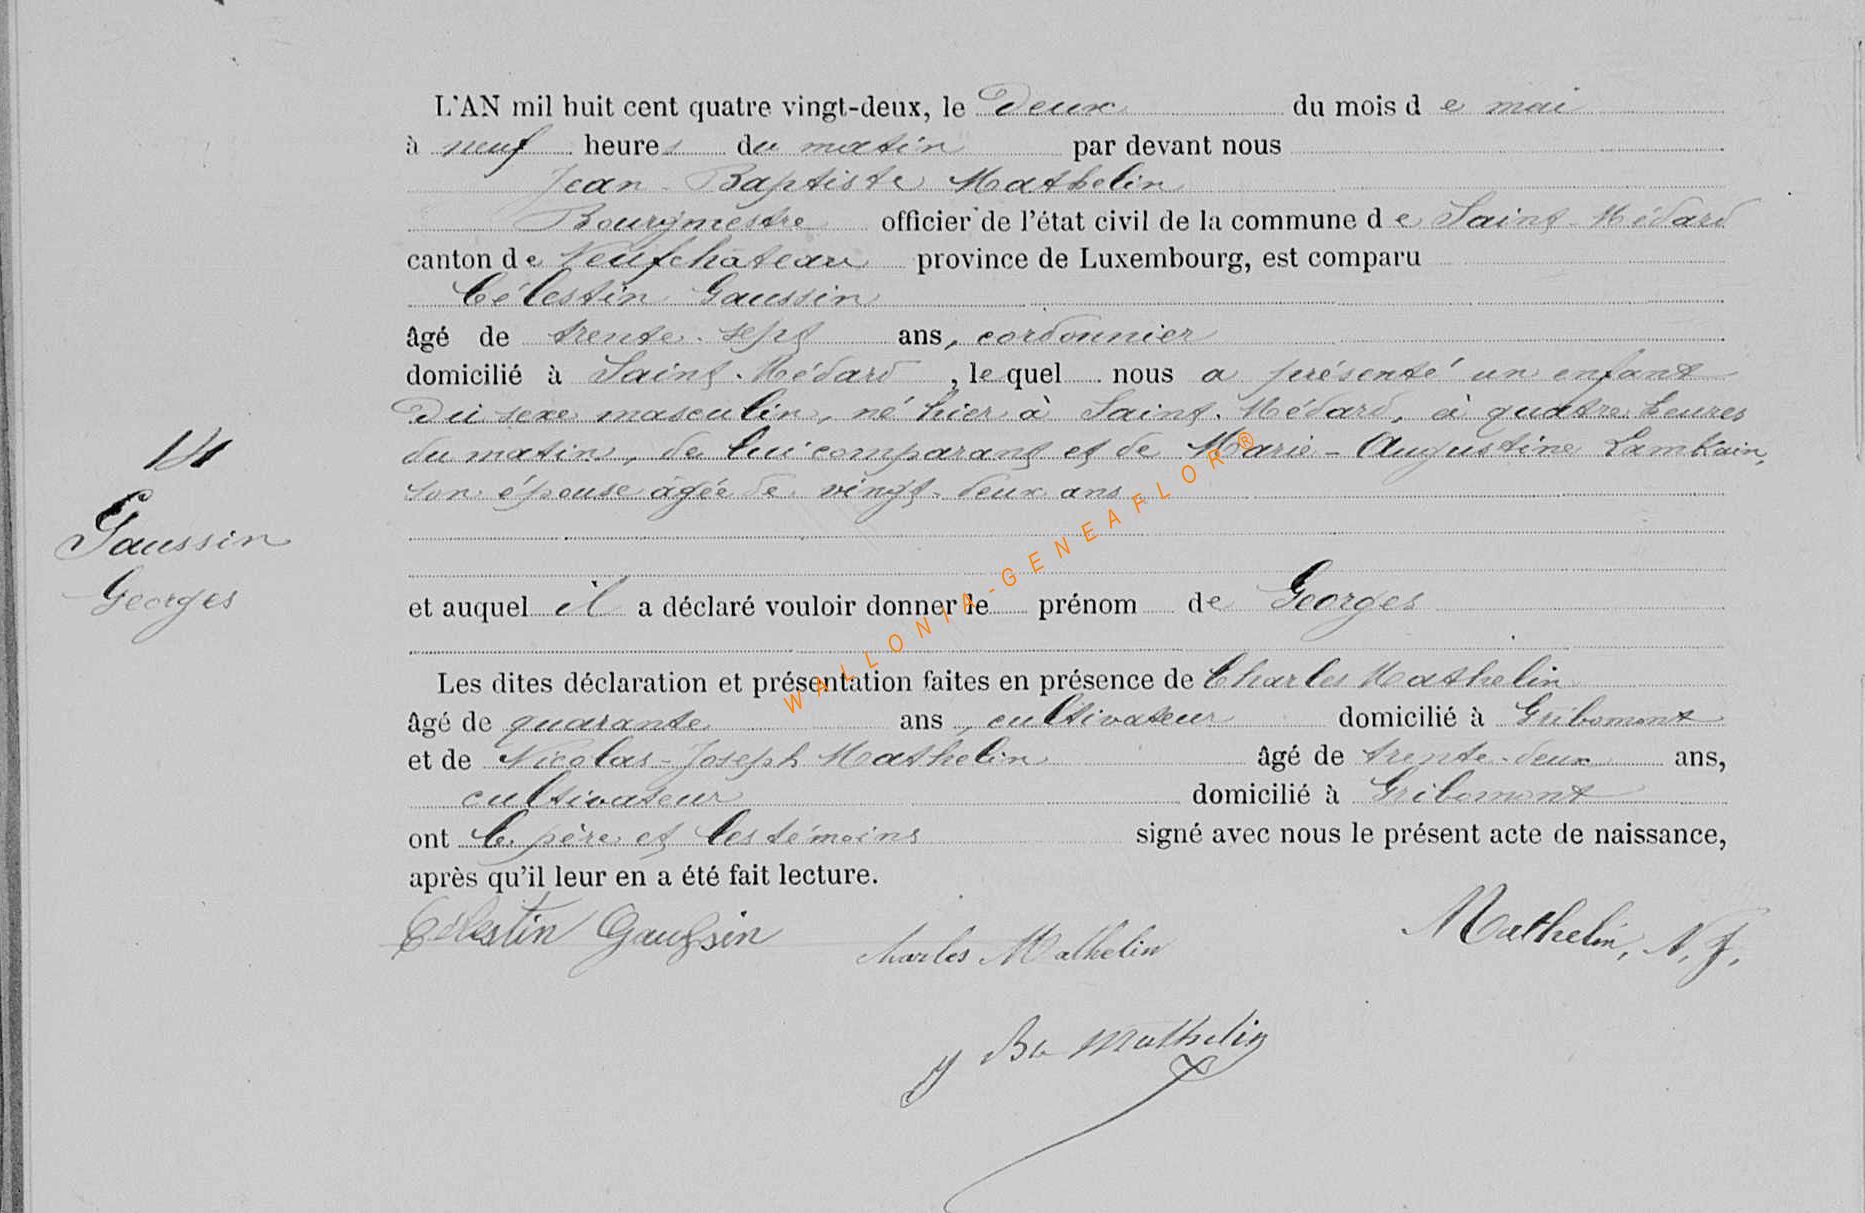 L'AN mil huit cent quatre vingt-deux, le Deux du mois de mai
à neuf heures du matin par devant nous
Jean-Baptiste Mathelin
Bourgmestre officier de l'état civil de la commune de Saint-Médard
canton de Neufchâteau province de Luxembourg, est comparu
Célestin Gaussin
âgé de trente-sept ans, cordonnier
domicilié à Saint-Médard, lequel nous a présenté un enfant
Du sexe masculin, né hier à Saint-Médard, à quatre heures
du matin, de lui comparant et de Marie-Augustine Lambkain,
son épouse âgée de vingt-deux ans
14
Gaussin
Georges
et auquel il a déclaré vouloir donner le prénom de Georges
Les dites déclaration et présentation faites en présence de Charles Mathelin
âgé de quarante ans, cultivateur domicilié à Gribomont
et de Nicolas-Joseph Mathelin âgé de trente-deux ans,
cultivateur domicilié à Gribomont
ont le père et les témoins signé avec nous le présent acte de naissance,
après qu'il leur en a été fait lecture.
Célestin Gaussin Charles Mathelin Mathelin, N. J.
J Bte Mathelin
WALLONIA-GENEAFLOR®